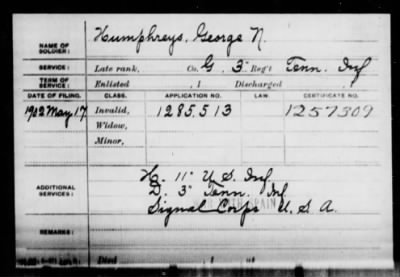 NAME OF SOLDIER: Humphreys, George N.
SERVICE: Late rank, Co. G, 3" Reg't Tenn. Inf
TERM OF SERVICE: Enlisted , 1 Discharged , 1
DATE OF FILING. CLASS. APPLICATION NO. LAW. CERTIFICATE NO.
1902 May 17 Invalid, 1285,513 1257309
Widow,
Minor,
ADDITIONAL SERVICES: Ho. 11" U.S. Inf
D. 3" Tenn. Inf
SPAIN
Signal Corps U.S.A.
REMARKS:
Died